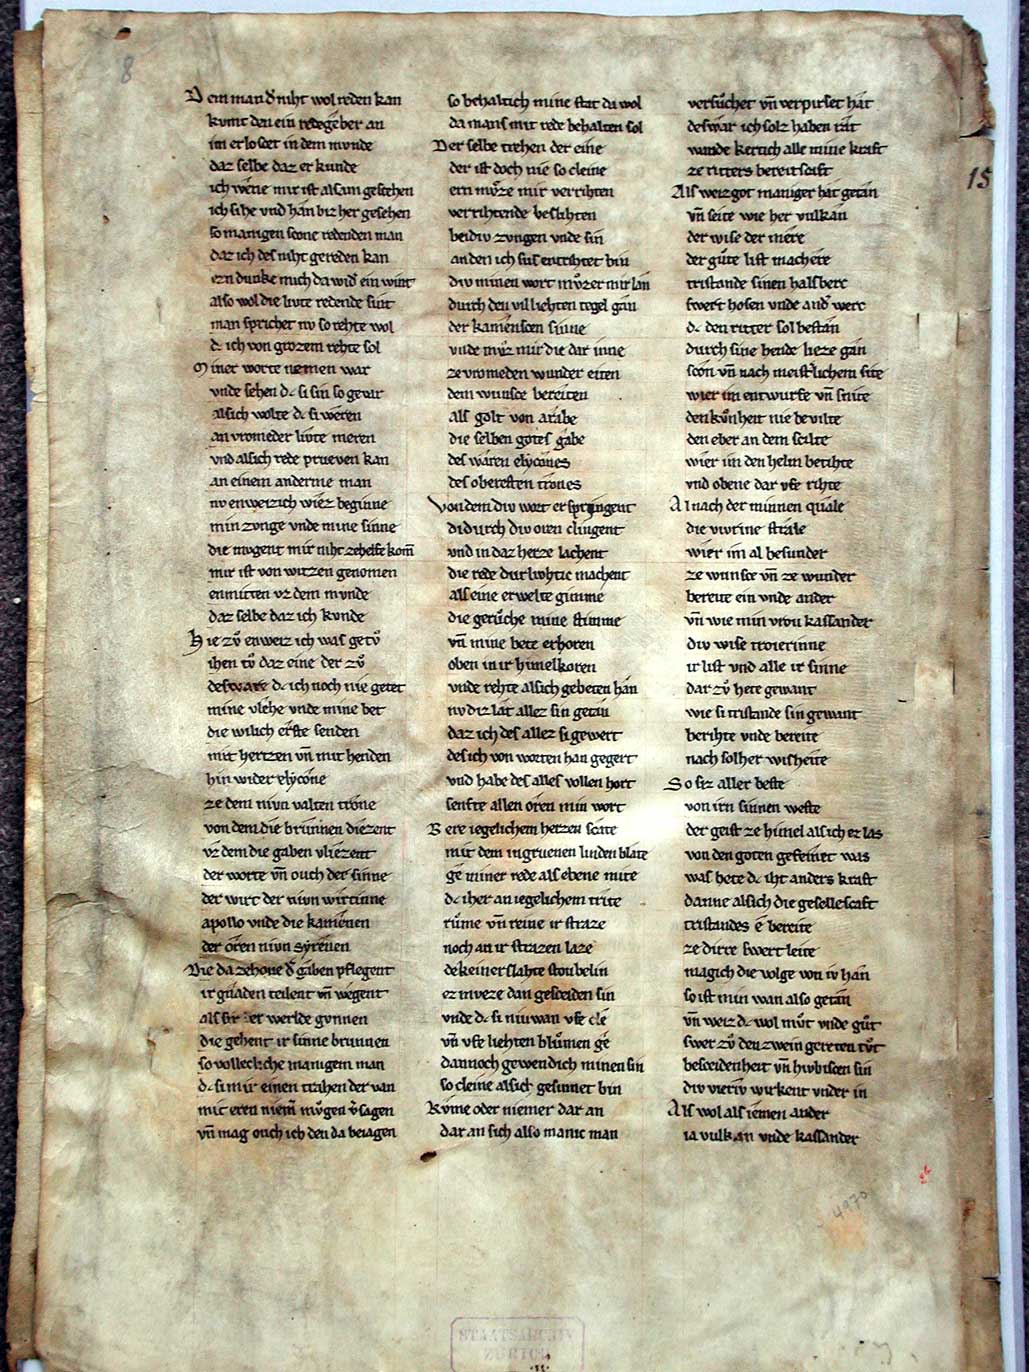 8
Dem man d niht wol reden kan
kvmt den ein redegeber an
im erlosdet in dem mvnde
daz selbe daz er kunde
ich wene mir ist alsam geschehen
ich sihe vnd han biz her gesehen
so manigen scone redenden man
daz ich des niht gereden kan
ezn dunke mich da wid ein wint
also wol die livte redende sint
man sprichet nv so rehte wol
dc ich von grozem rehte sol
Miner worte nemen war
vnde sehen dc si sin so gevar
alsich wolte dc si weren
an vromeder livte meren
vnd alsich rede prueven kan
an einem anderme man
nv enweizich wiez beginne
min zvnge vnde mine sinne
die mugent mir niht zehelfe kom
mir ist von witzen genomen
enmitten vz dem mvnde
daz selbe daz ich kvnde
Hie zv enweiz ich was getv
ihen tv daz eine der zv
desware dc ich noch nie getet
mine vlehe vnde mine bet
die wilich erste senden
mit hertzen vn mit henden
hin wider elycone
ze dem nivn valten trone
von dem die brunnen diezent
vz dem die gaben vliezent
der worte vn ouch der sinne
der wirt der nivn wirtinne
apollo vnde die kamenen
der oren nivn syrenen
Die da zehoue d gaben pflegent
ir gnaden teilent vn wegent
als sir der werlde gvnnen
die gebent ir sinne brunnen
so volleclche manigem man
dc si mir einen trahen der van
mit eren niem mvgen v sagen
vn mag ouch ich den da beiagen
so behaltich mine stat da wol
da mans mit rede behalten sol
Der selbe trehen der eine
der ist doch nie so cleine
ern mvze mir verrihten
verrihtende beslihten
beidiv zvngen vnde sin
an den ich sus entrihtet bin
div minen wort mvzer mir lan
durch den vil liehten tegel gan
der kamenscen sinne
vnde mvz mir die dar inne
ze vromeden wunder eiten
dem wunsce bereiten
als golt von arabe
die selben gotes gabe
des waren elycones
des obersten trones
Von dem div wort er springent
di durch div oren clingent
vnd in daz herze lachent
die rede durlivhtic machent
als eine er welte gimme
die geruche mine stimme
vn mine bete erhoren
oben in ir himelkoren
vnde rehte alsich gebeten han
nv diz lat allez sin getan
daz ich des allez si gewert
des ich von worten han gegert
vnd habe des alles vollen hort
senfte allen oren min wort
Bere iegelichem herzen scate
mit dem ingruenen linden blate
ge miner rede als ebene mite
dc iher an iegelichem trite
rume vn reine ir straze
noch an ir strazen laze
dekeiner slahte stoubelin
ez mveze dan gesceiden sin
vnde dc si niuwan vfe cle
vn vfe liehten blumen ge
dannoch gewendich minen sin
so cleine alsich gesinnet bin
Kvme oder niemer dar an
dar an sich also manic man
versuchet vn verpirset hat
deswar ich solz haben rat
wande kertich alle mine kraft
ze ritters bereitscaft
Als weiz got maniger hat getan
vn seite wie her vulkan
der wise der mere
der gute list machere
tristande sinen halsberc
swert hosen vnde and werc
dc den ritter sol bestan
durch sine hende lieze gan
scon vn nach meistlichem site
wier im entwurfe vn snite
den kvnheit nie bevilte
den eber an dem scilte
wier im den helm berihte
vnd obene dar vfe rihte
Al nach der minnen quale
die vivrine strale
wier im al besunder
ze wunsce vn ze wunder
bereite ein vnde ander
vn wie min vrou kassander
div wise troierinne
ir list vnd alle ir sinne
dar zv hete gewant
wie si tristande sin gewant
berihte vnde bereite
nach solher wisheite
So siz aller beste
von irn sinnen weste
der geist ze himel alsich ez las
von den goten gefeinet was
was hete dc iht anders kraft
danne alsich die gesellescaft
tristandes e bereite
ze dirre swert leite
magich die volge von iv han
so ist min wan also getan
vn weiz dc wol mvt vnde gut
swer zv den zwein gereten tvt
bescidenheit vn hivbiscen sin
div vieriv wirkent vnder in
Als wol als iemen ander
ia vulkan vnde kassander
15
4970
STAATSARCHIV
ZÜRICH